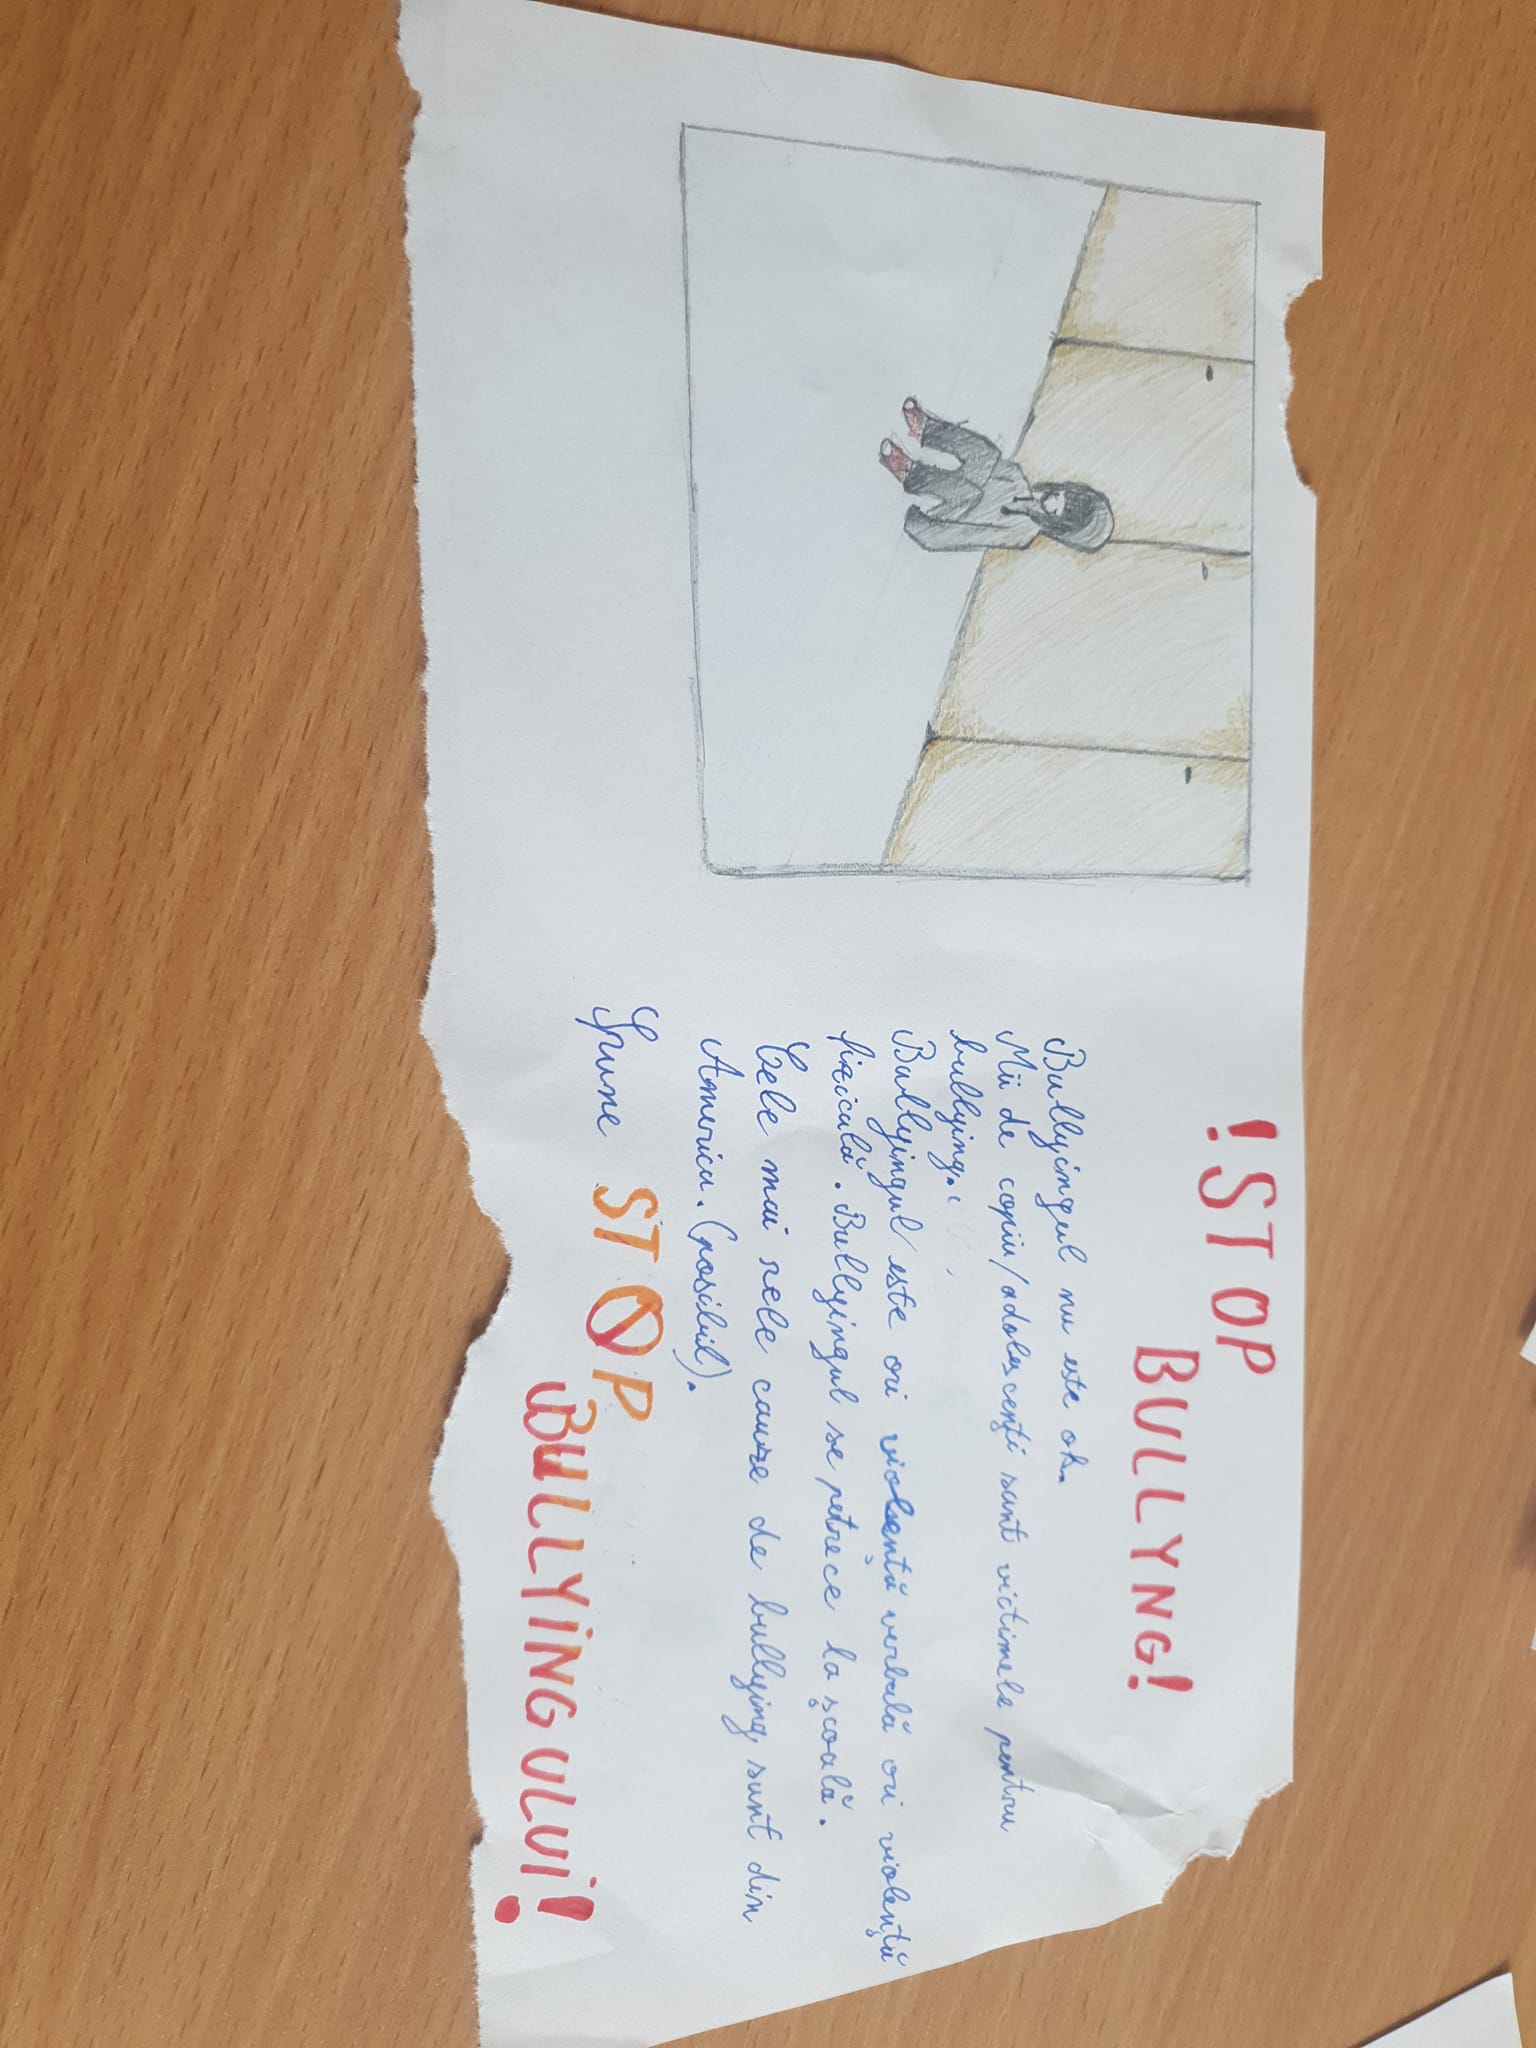 ! STOP
BULLYNG!
Bullyingul nu este ok.
Mii de copiu/adolescenți sunt victimele pentru
bullying.
Bullyingul este ori violență verbală ori violență
fizicală. Bullyingul se petrece la școală.
Cele mai rele cauze de bullying sunt din
America. (posibil).
Spune STOP
BULLYiNGULUi!